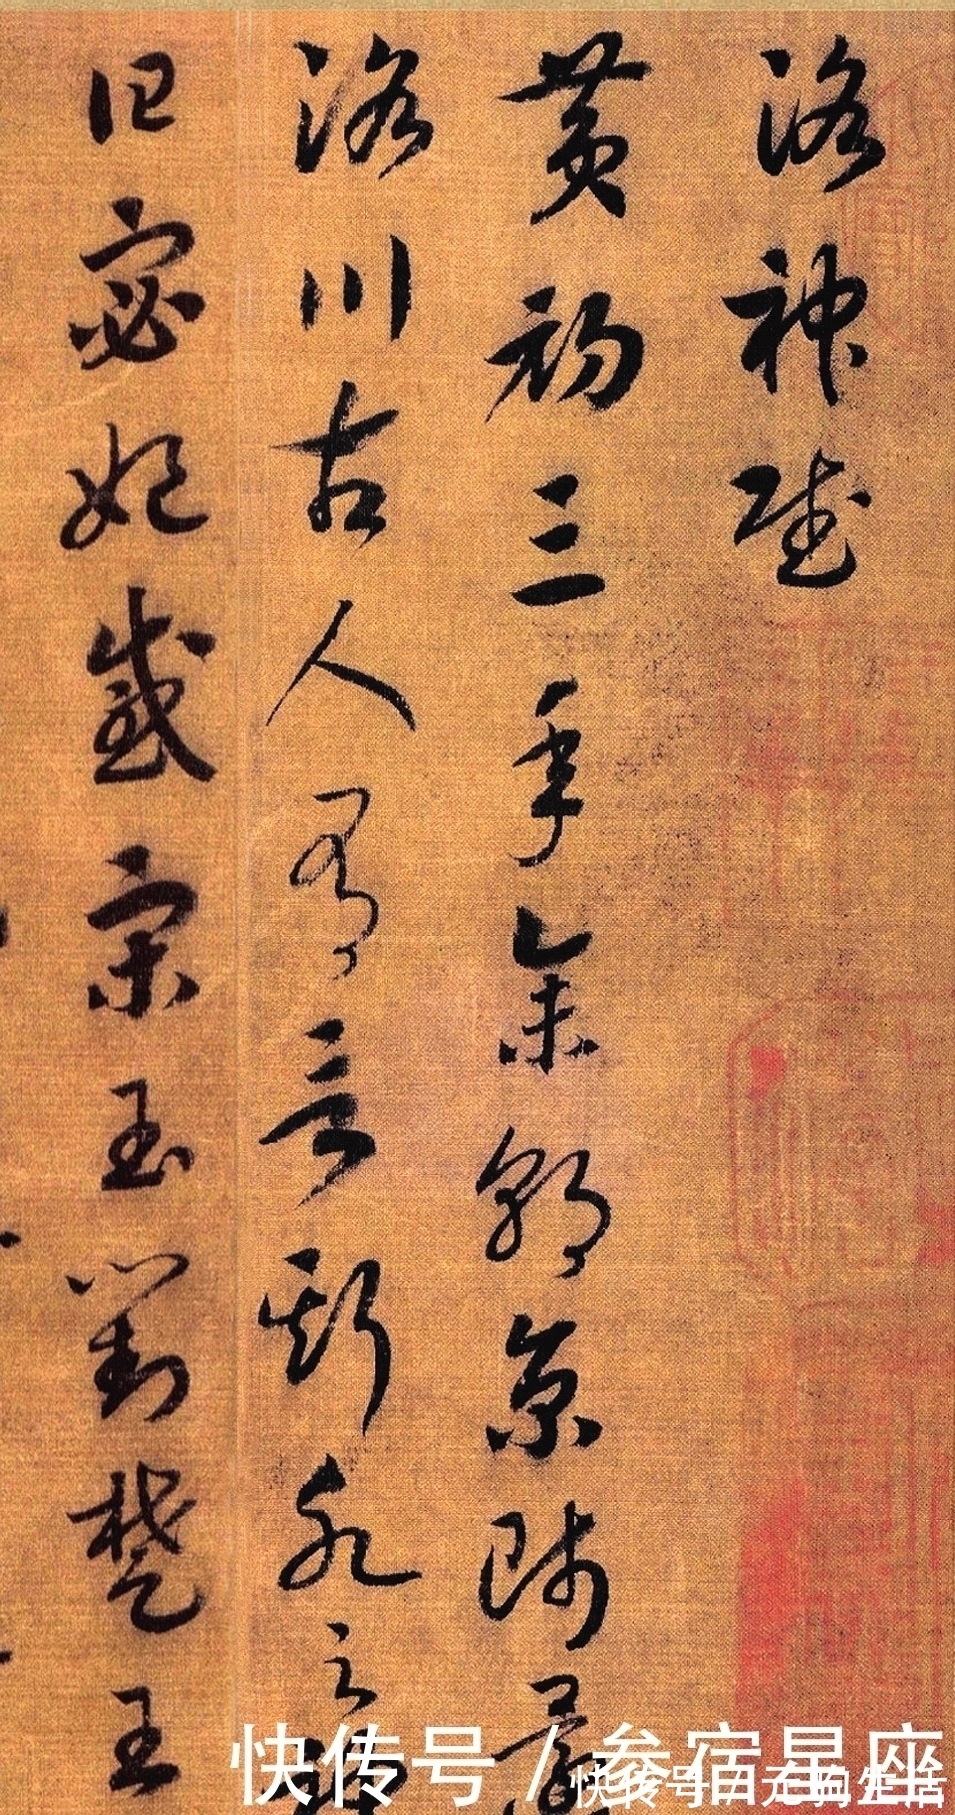 洛神賦
黄初三年余朝京師還
洛川古人有言斯水之
曰宓妃感宋玉對楚王
快传号 / 参宿星座